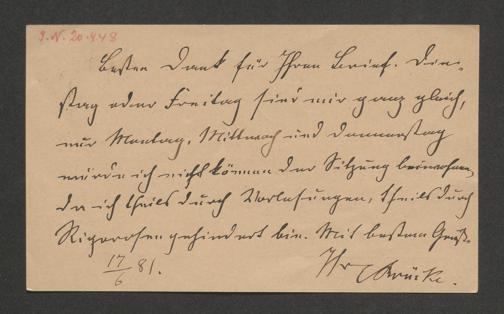 I.N. 20.448
Besten Dank für Ihren Brief. Dien-
stag oder Freitag sind mir ganz gleich,
nur Montag, Mittwoch und Donnerstag
würde ich nicht können der Sitzung beiwohnen,
da ich theils durch Vorlesungen, theils durch
Rigorosen gehindert bin. Mit bestem Gruß
17/6 81. Ihr Brücke.